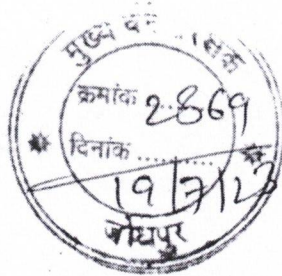 मुख्य
क्रमांक 2869
दिनांक ..........
19/7/23
जोधपुर